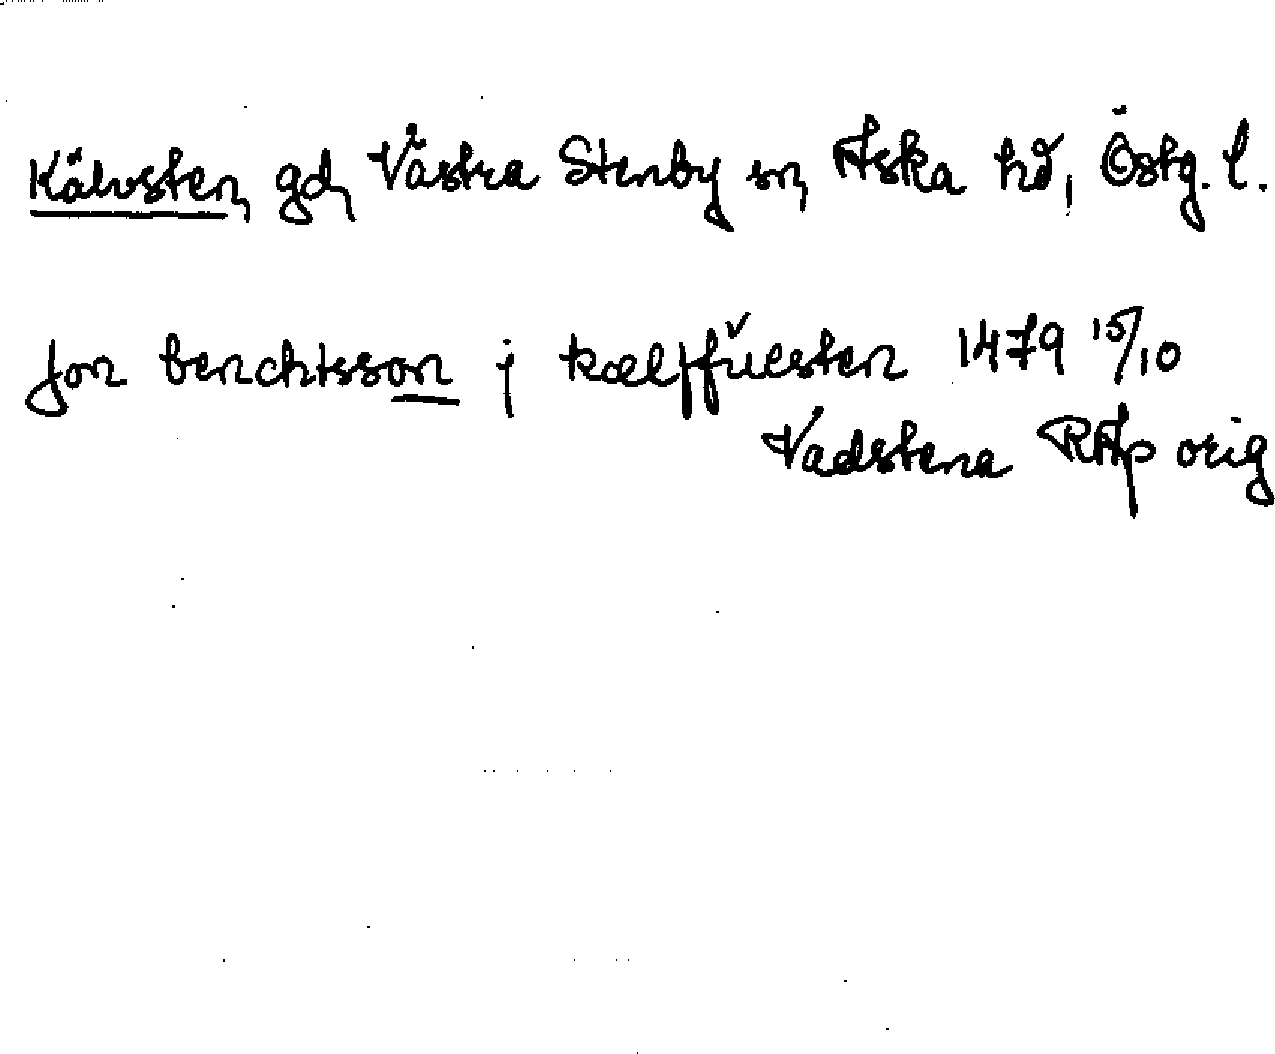 Kälvsten, gd, Västra Stenby sn, Aska hd, Östg. l.
Jon benchtsson j kælffuesten 1479 15/10
Vadstena RAp orig